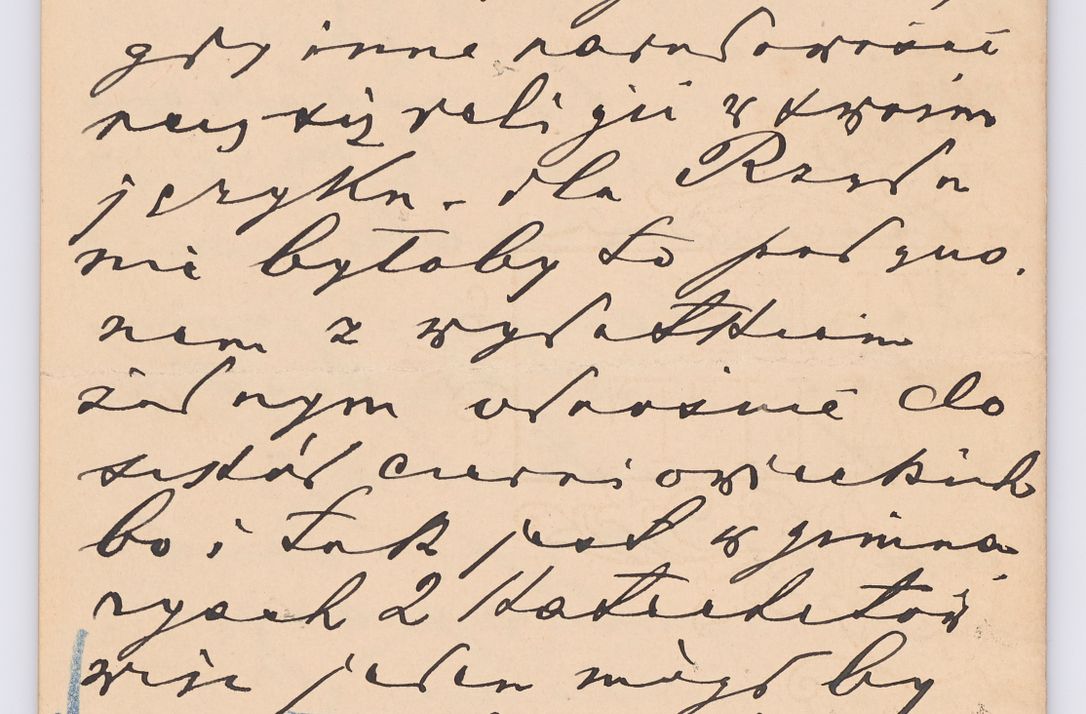 gdy inne narodowości
uczą się religii w swoim
języku. dla Rządu
nie byłoby to połączo-
nem z wydatkiem
żadnym odnośnie do
szkół czerniowieckich
bo i tak jest w gimna-
zyach 2 Katechetów
więc jeden mógł by